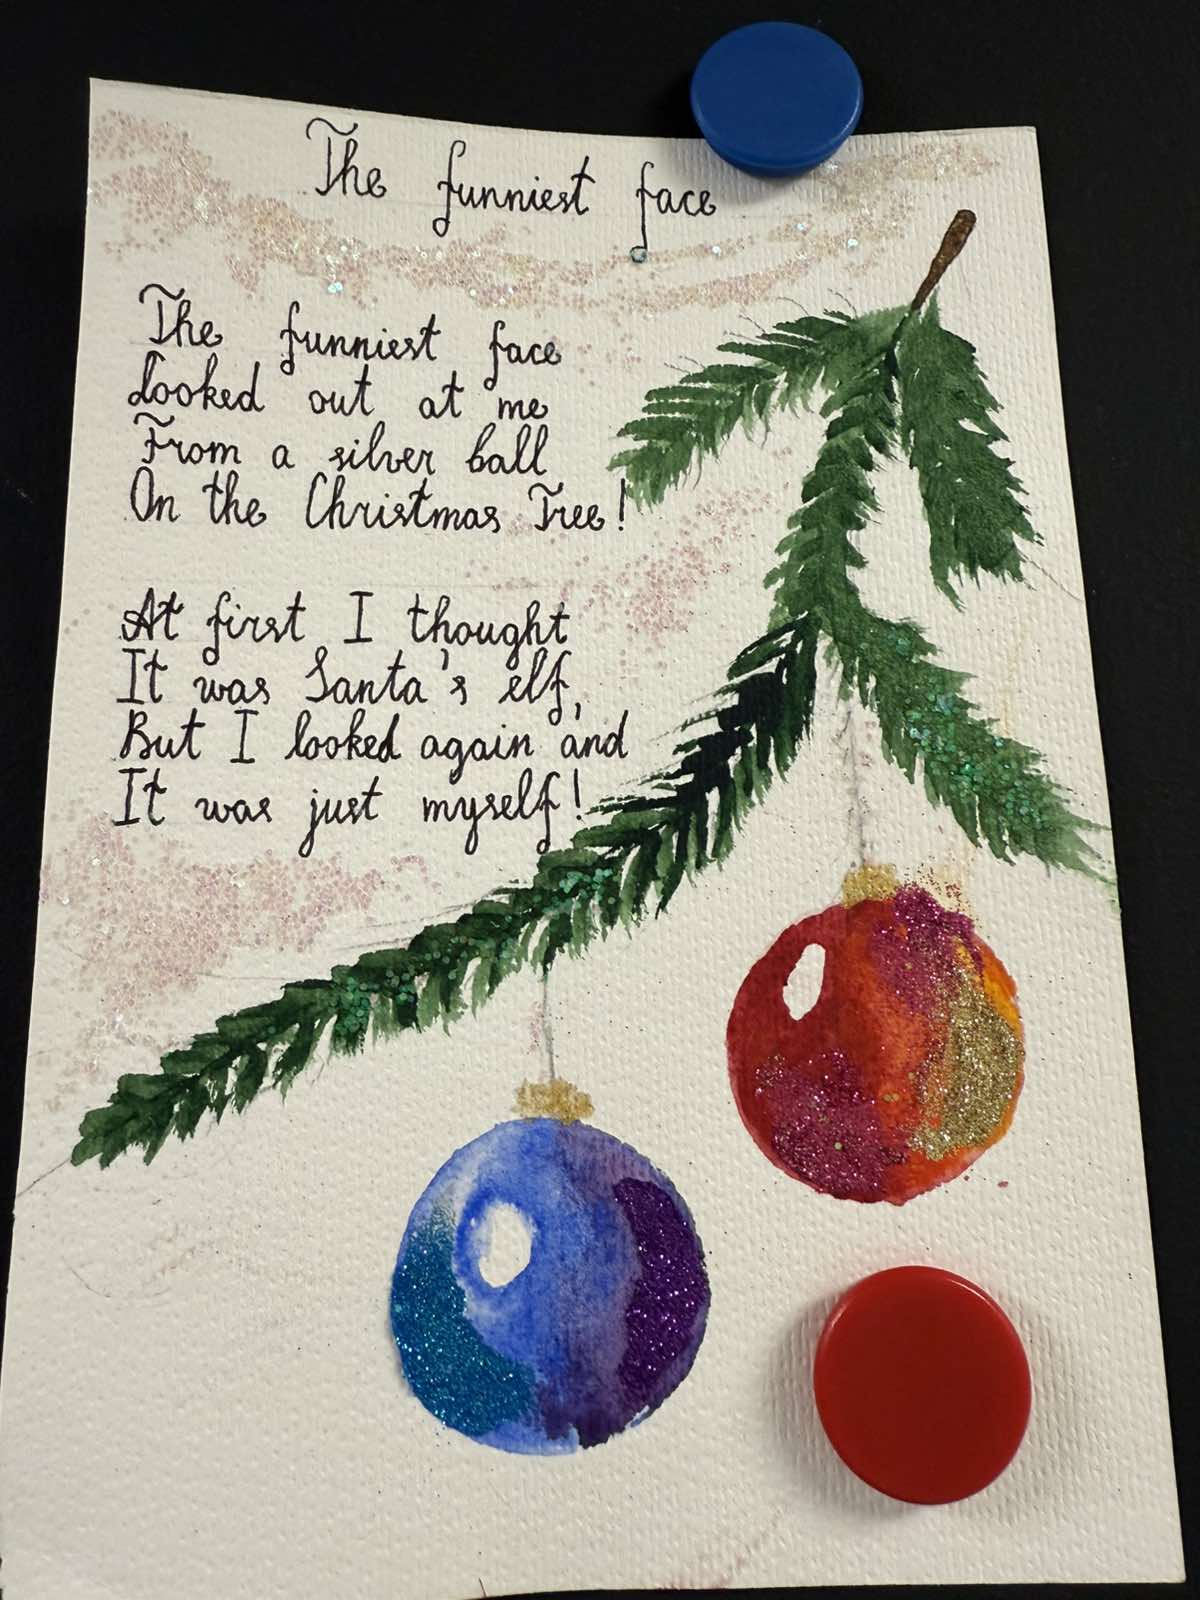 The funniest face
The funniest face
Looked out at me
From a silver ball
On the Christmas Tree!
At first I thought
It was Santa's elf,
But I looked again and
It was just myself!